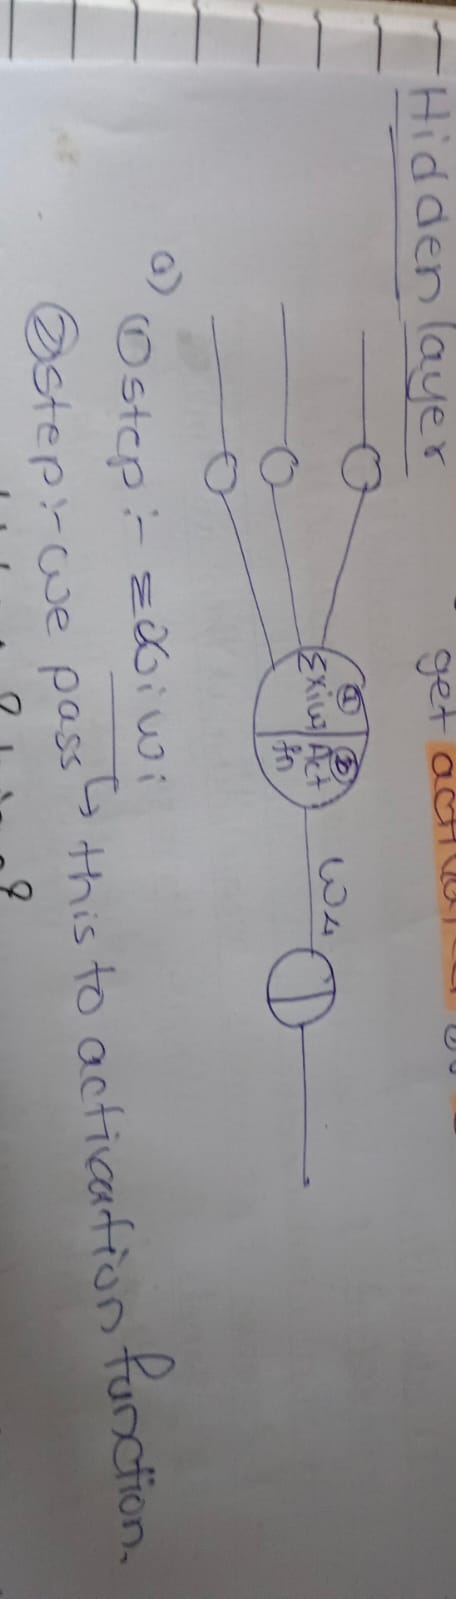 Hidden layer
get
① ②
Σxiwi Act
fn
W4
a) ① step :- Σxiwi
② step :- we pass ↳ this to activation function.